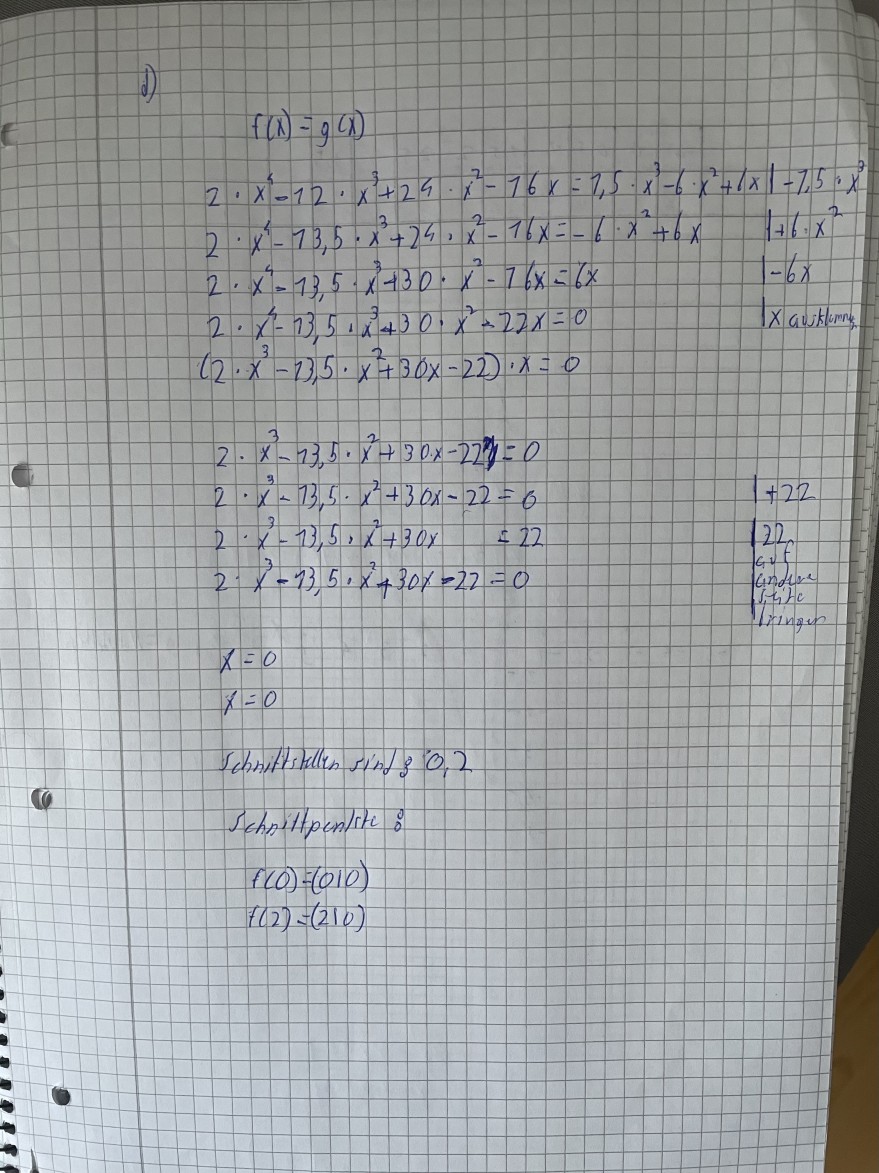 d)
f(x) = g(x)
2 · x⁴ - 12 · x³ + 24 · x² - 16x = 1,5 · x³ - 6 · x² + 6x | - 1,5 · x³
2 · x⁴ - 13,5 · x³ + 24 · x² - 16x = - 6 · x² + 6x | + 6 · x²
2 · x⁴ - 13,5 · x³ + 30 · x² - 16x = 6x | - 6x
2 · x⁴ - 13,5 · x³ + 30 · x² - 22x = 0 | x
(2 · x³ - 13,5 · x² + 30x - 22) · x = 0
2 · x³ - 13,5 · x² + 30x - 22 = 0
2 · x³ - 13,5 · x² + 30x - 22 = 0 | + 22
2 · x³ - 13,5 · x² + 30x = 22 | 22
auf
andere
seite
bringen
2 · x³ - 13,5 · x² + 30x - 22 = 0
x = 0
x = 0
Schnittstellen sind : 0, 2
Schnittpunkte :
f(0) = (0|0)
f(2) = (2|0)